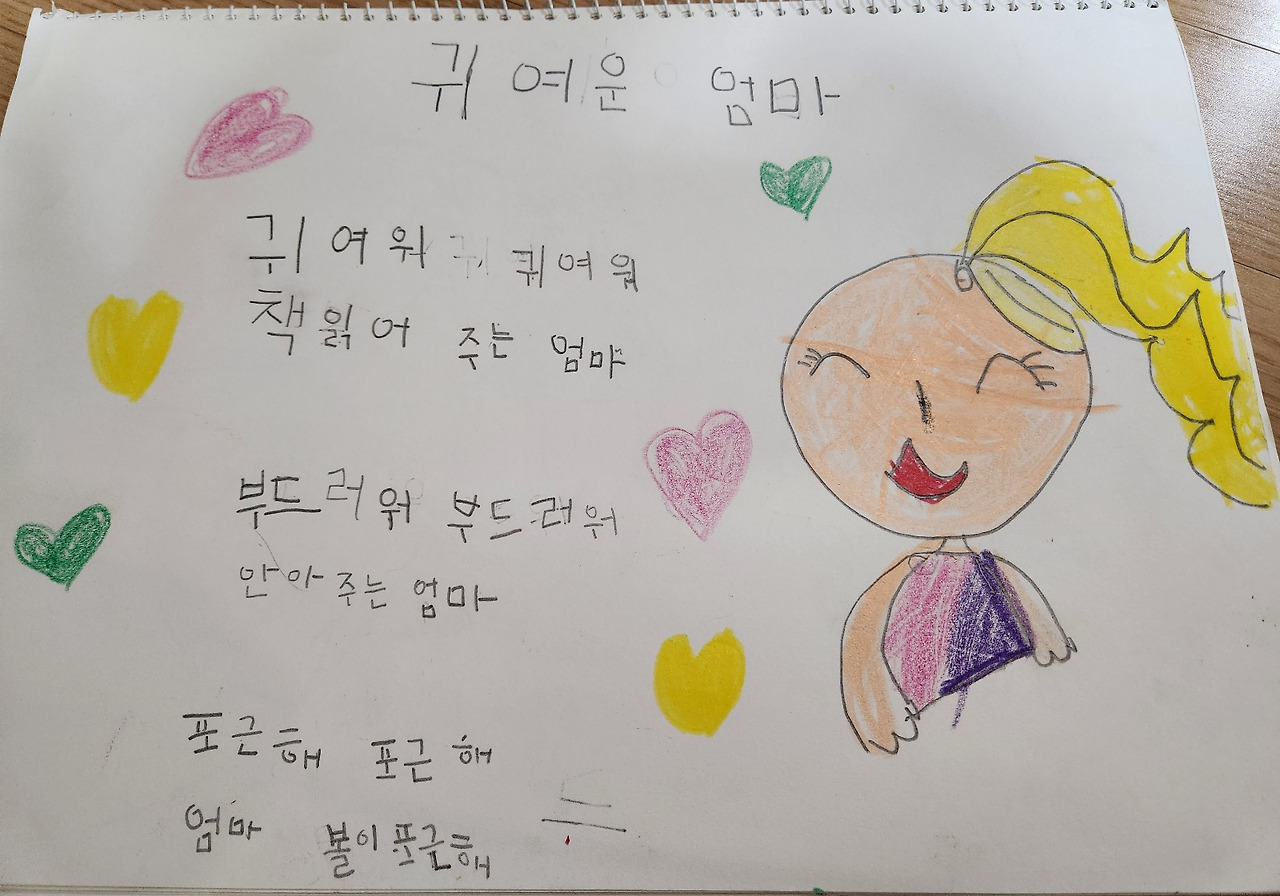 귀여운 엄마
귀여워 귀여워
책 읽어 주는 엄마
부드러워 부드러워
안아 주는 엄마
포근해 포근해
엄마 볼이 포근해